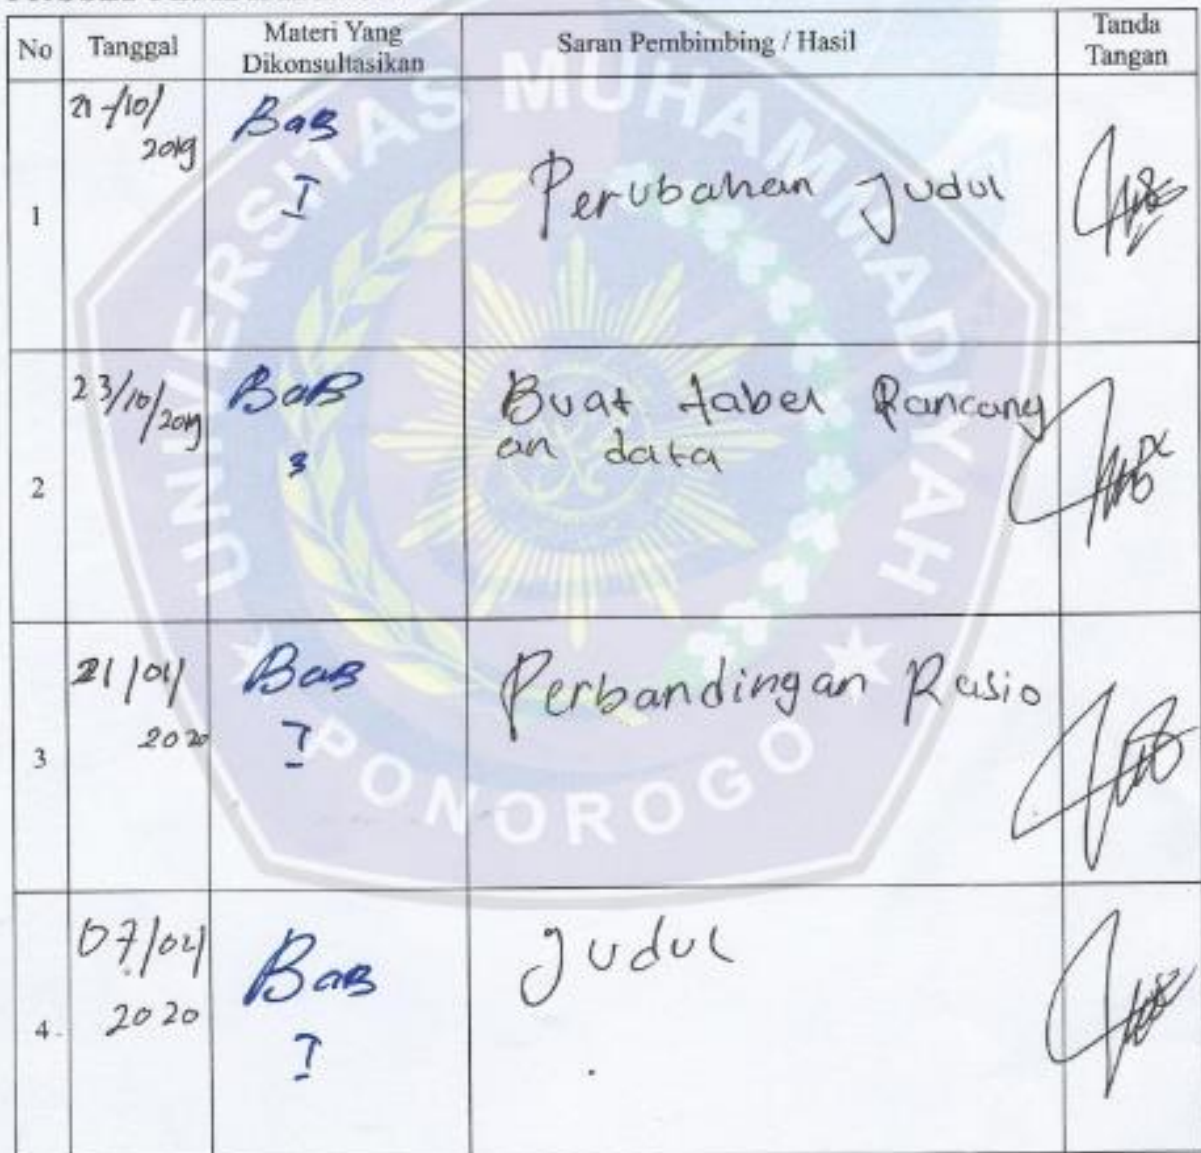 No Tanggal Materi Yang Dikonsultasikan Saran Pembimbing / Hasil Tanda Tangan
1
21/10/
2019
BaB
I
Perubahan Judul
2
23/10/2019
BaB
3
Buat tabel Rancang
an data
3
21/01/
2020
BaB
I
Perbandingan Rasio
4
07/04
2020
BaB
I
Judul
UNIVERSITAS MUHAMMADIYAH
PONOROGO